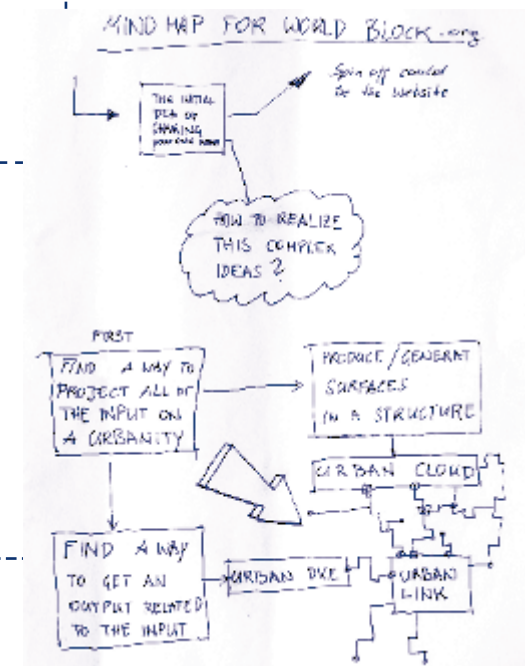 MIND MAP FOR WORLD BLOCK.org
Spin off
to the website
THE INITIAL
IDEA OF
SHARING
HOW TO REALIZE
THIS COMPLEX
IDEAS?
FIRST
FIND A WAY TO
PROJECT ALL OF
THE INPUT ON
A URBANITY
PRODUCE/GENERAT
SURFACES
IN A STRUCTURE
URBAN CLOUD
FIND A WAY
TO GET AN
OUTPUT RELATED
TO THE INPUT
URBAN
URBAN
LINK